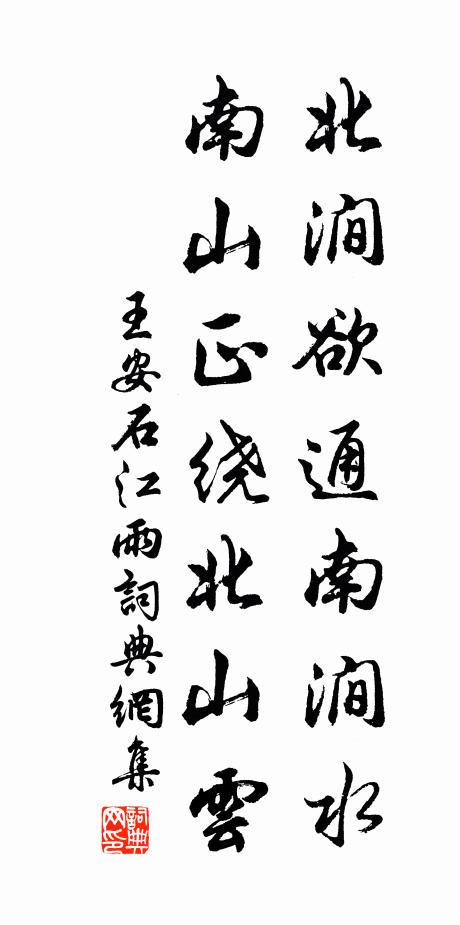 北澗欲通南澗水
南山正绕北山雲
王安石江雨詞典網集
詞典網印